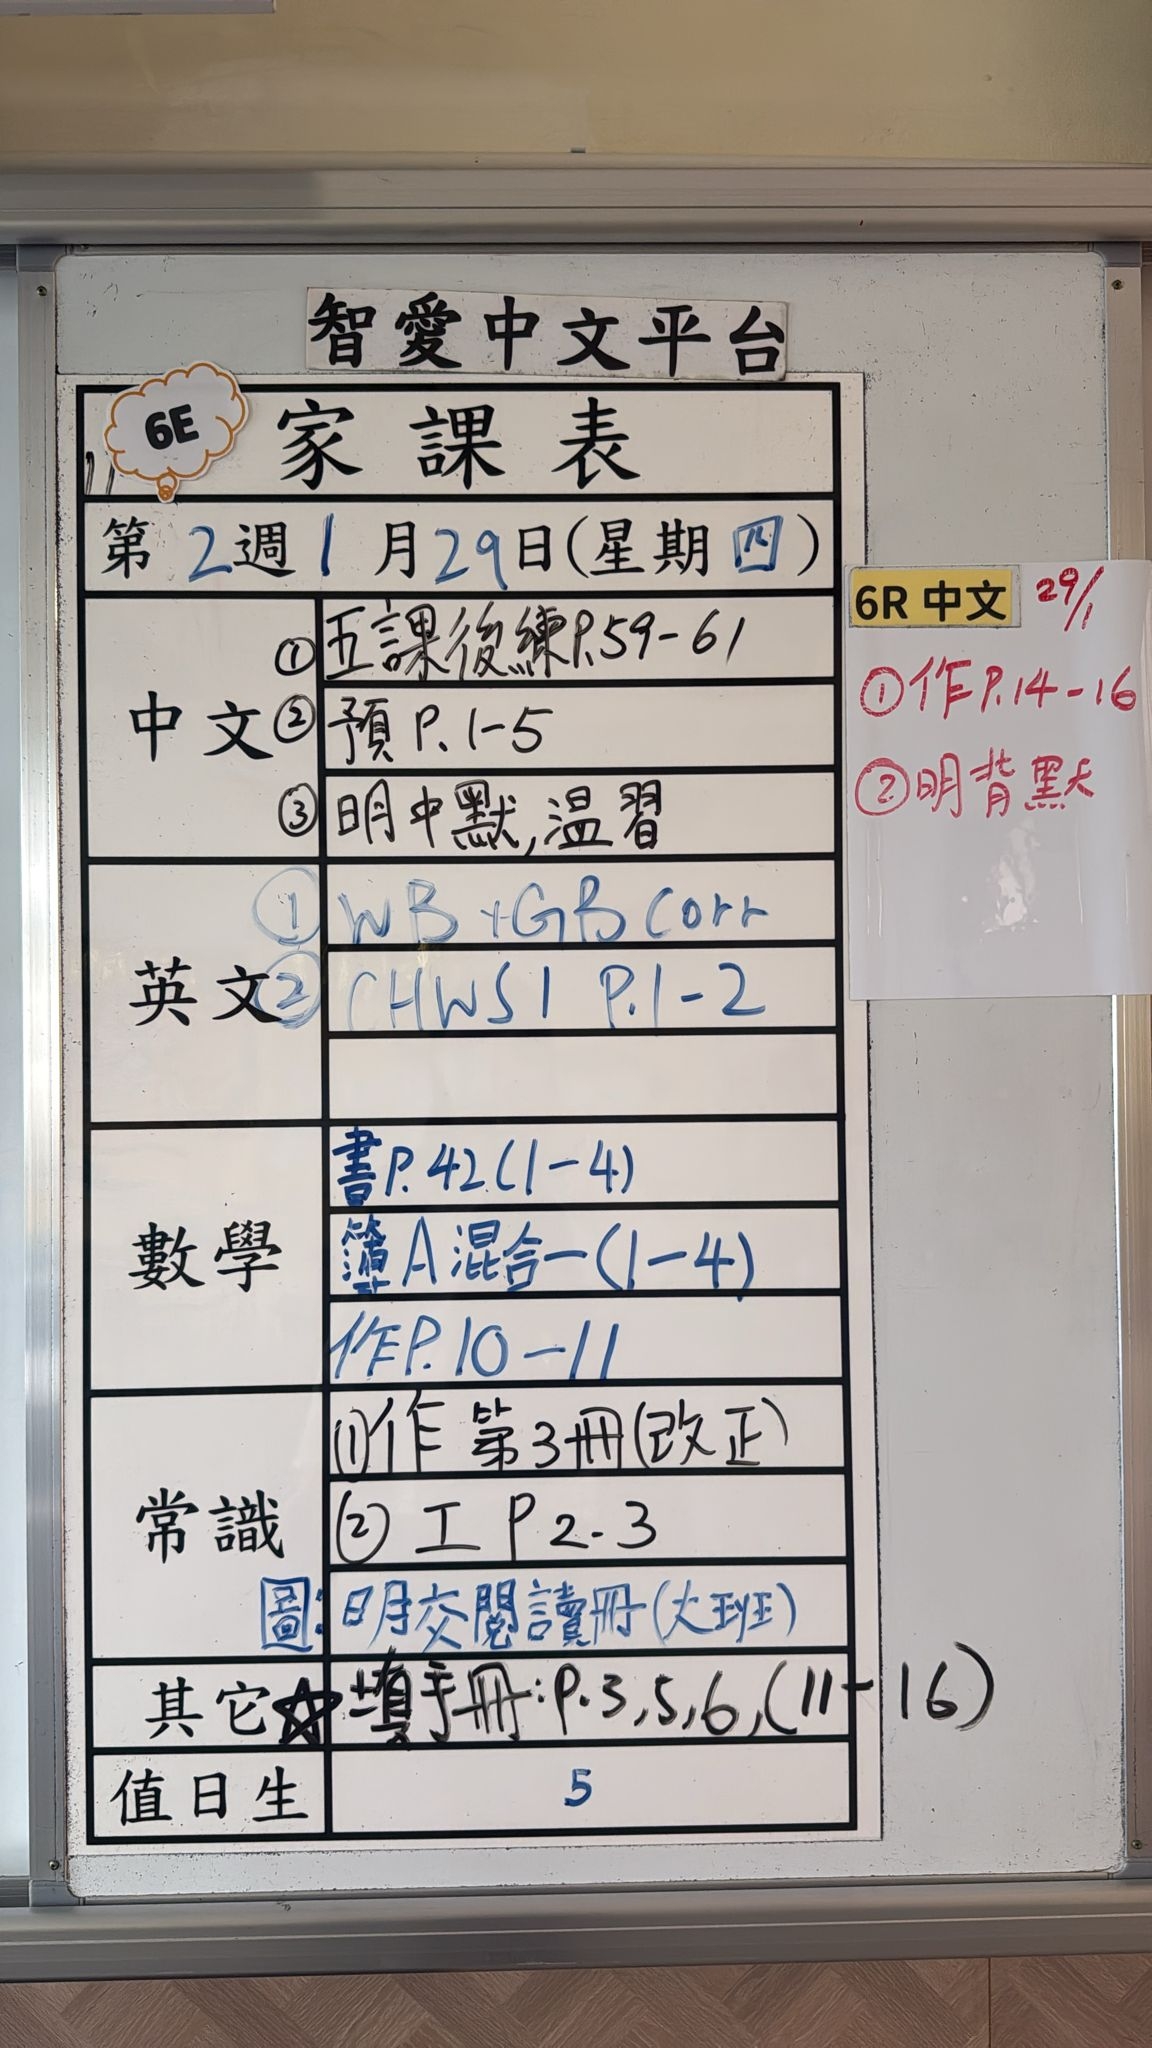 智愛中文平台
6E
家課表
第2週1月29日(星期四)
中文
①五課後練P.59-61
②預P.1-5
③明中默,温習
英文
①WB+GB Corr
②CHWS1 P.1-2
數學
書P.42(1-4)
簿A混合一(1-4)
作P.10-11
常識
①作 第3冊(改正)
② 工 P 2-3
圖:明交閱讀冊(大班)
其它☆填手冊:P.3,5,6,(11-16)
值日生
5
6R 中文 29/1
①作P.14-16
②明背默